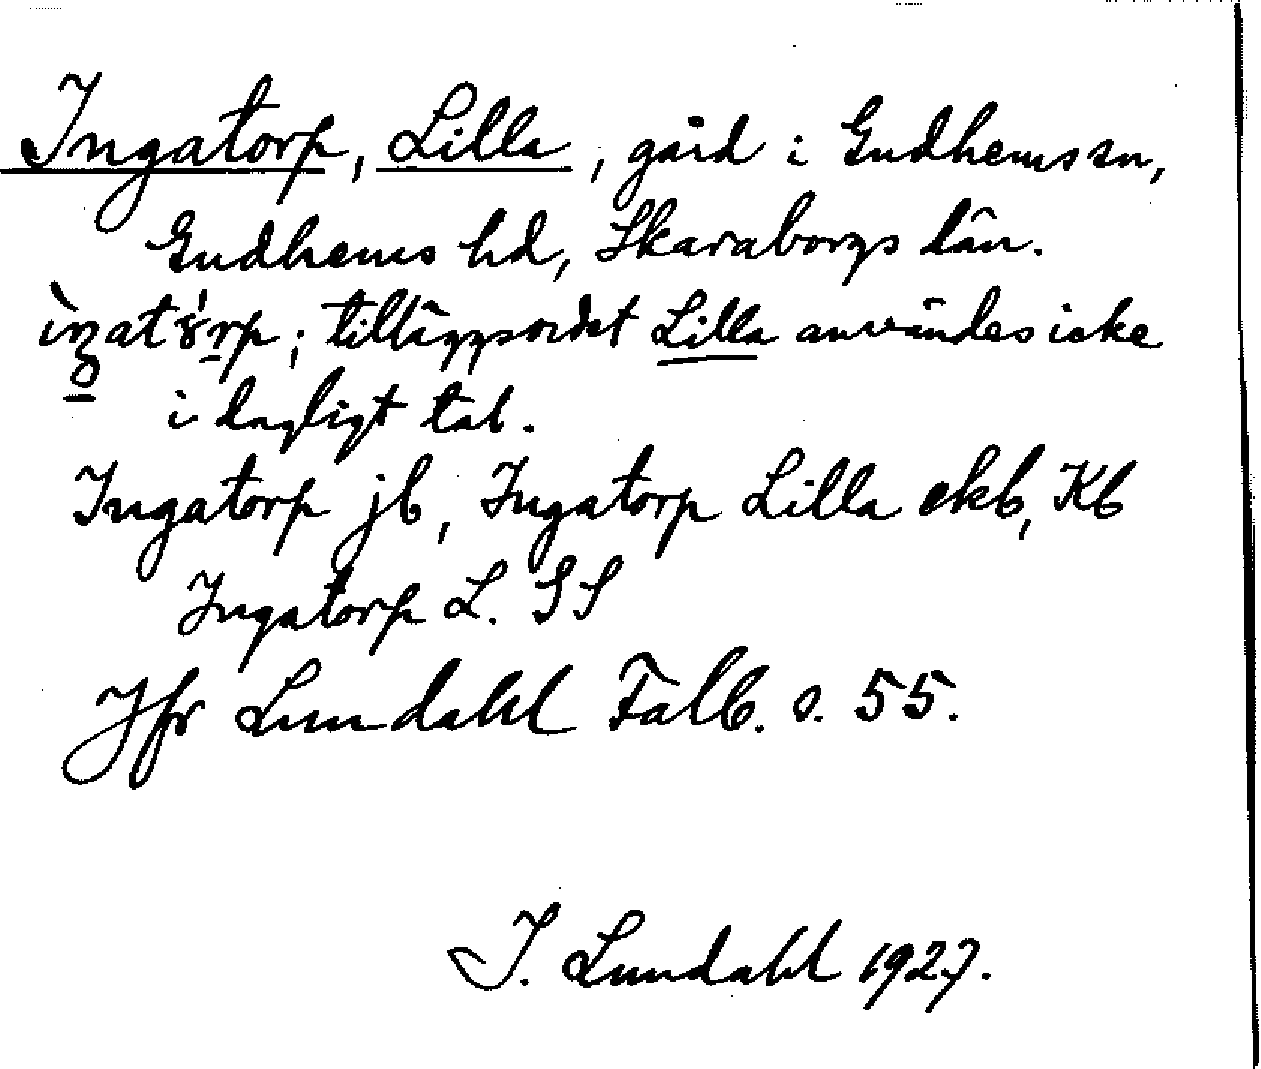 Ingatorp, Lilla, gård i Gudhems sn,
Gudhems hd, Skaraborgs län.
tilläggsordet Lilla användes icke
i dagligt tal.
Ingatorp jb, Ingatorp Lilla ekb, Kb
Ingatorp L. SS
Jfr Lundahl Falb. s. 55.
I. Lundahl 1927.